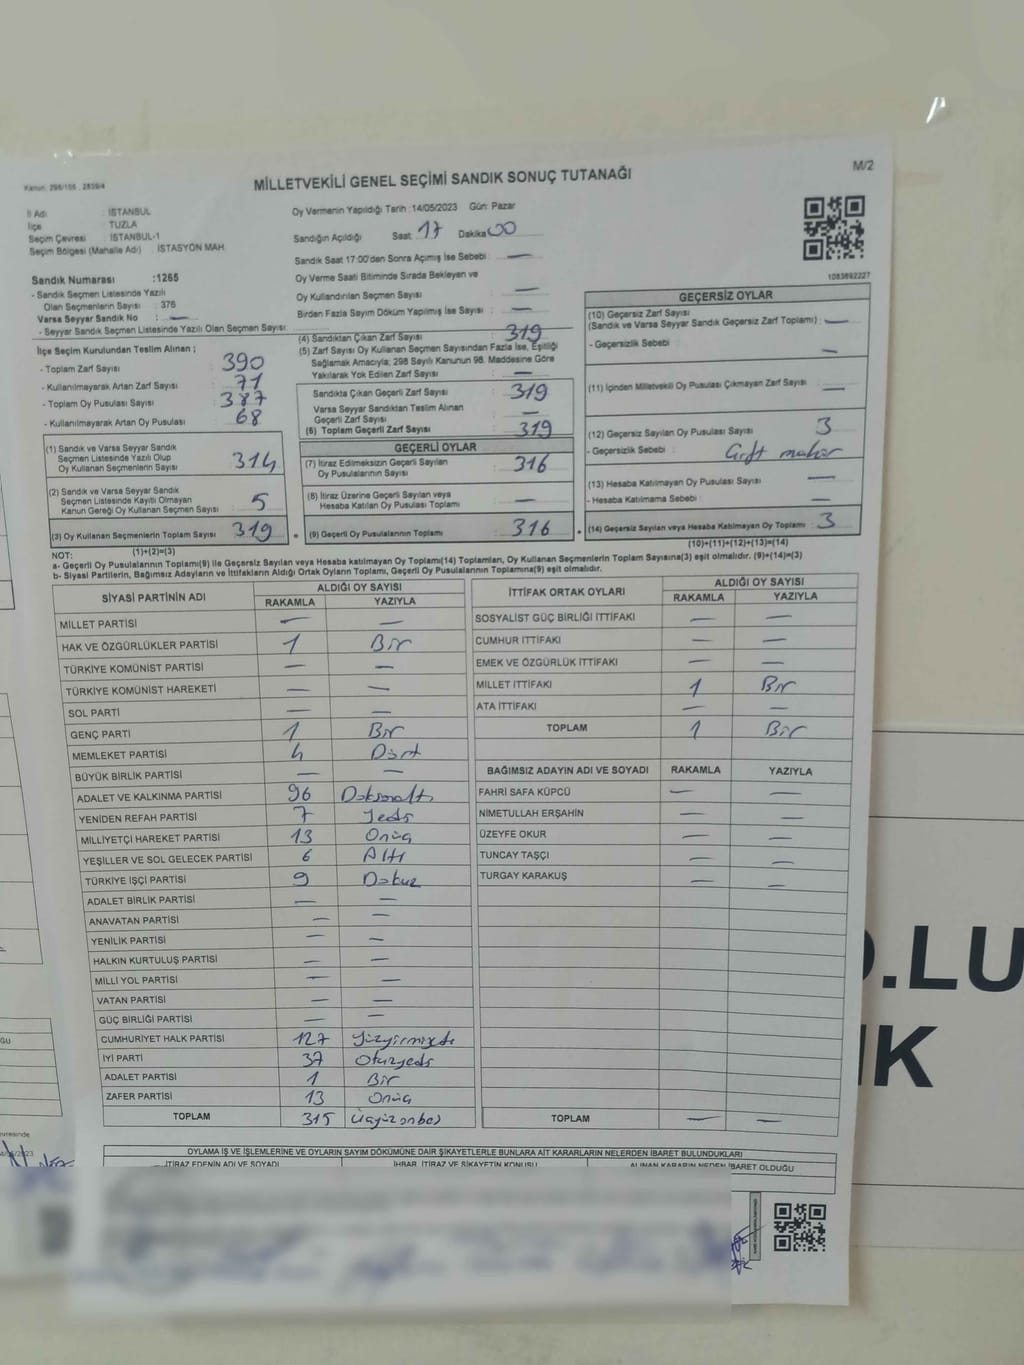 M/2
Kanun: 298/105 , 2839/4
MİLLETVEKİLİ GENEL SEÇİMİ SANDIK SONUÇ TUTANAĞI
İl Adı : İSTANBUL
İlçe : TUZLA
Seçim Çevresi : İSTANBUL-1
Seçim Bölgesi (Mahalle Adı) : İSTASYON MAH.
Oy Vermenin Yapıldığı Tarih :14/05/2023 Gün: Pazar
Sandığın Açıldığı Saat 17 Dakika 00
Sandık Saat 17:00'den Sonra Açımış İse Sebebi : —
Oy Verme Saati Bitiminde Sırada Bekleyen ve
Oy Kullandırılan Seçmen Sayısı : —
Birden Fazla Sayım Döküm Yapılmış İse Sayısı : —
1083692227
Sandık Numarası :1265
- Sandık Seçmen Listesinde Yazılı
Olan Seçmenlerin Sayısı : 376
Varsa Seyyar Sandık No : —
- Seyyar Sandık Seçmen Listesinde Yazılı Olan Seçmen Sayısı:
İlçe Seçim Kurulundan Teslim Alınan ;
- Toplam Zarf Sayısı : 390
- Kullanılmayarak Artan Zarf Sayısı : 71
- Toplam Oy Pusulası Sayısı : 387
- Kullanılmayarak Artan Oy Pusulası : 68
(1) Sandık ve Varsa Seyyar Sandık
Seçmen Listesinde Yazılı Olup
Oy Kullanan Seçmenlerin Sayısı : 314
(2) Sandık ve Varsa Seyyar Sandık
Seçmen Listesinde Kayıtlı Olmayan
Kanun Gereği Oy Kullanan Seçmen Sayısı : 5
(3) Oy Kullanan Seçmenlerin Toplam Sayısı : 319
(1)+(2)=(3)
(4) Sandıktan Çıkan Zarf Sayısı : 319
(5) Zarf Sayısı Oy Kullanan Seçmen Sayısından Fazla İse, Eşitliği
Sağlamak Amacıyla; 298 Sayılı Kanunun 98. Maddesine Göre
Yakılarak Yok Edilen Zarf Sayısı : —
Sandıkta Çıkan Geçerli Zarf Sayısı : 319
Varsa Seyyar Sandıktan Teslim Alınan
Geçerli Zarf Sayısı : —
(6) Toplam Geçerli Zarf Sayısı : 319
GEÇERLİ OYLAR
(7) İtiraz Edilmeksizin Geçerli Sayılan
Oy Pusulalarının Sayısı : 316
(8) İtiraz Üzerine Geçerli Sayılan veya
Hesaba Katılan Oy Pusulası Toplamı : —
(9) Geçerli Oy Pusulalarının Toplamı : 316
GEÇERSİZ OYLAR
(10) Geçersiz Zarf Sayısı
(Sandık ve Varsa Seyyar Sandık Geçersiz Zarf Toplamı) : —
- Geçersizlik Sebebi : —
(11) İçinden Milletvekili Oy Pusulası Çıkmayan Zarf Sayısı : —
(12) Geçersiz Sayılan Oy Pusulası Sayısı : 3
- Geçersizlik Sebebi : Çift mühür
(13) Hesaba Katılmayan Oy Pusulası Sayısı : —
- Hesaba Katılmama Sebebi : —
(14) Geçersiz Sayılan veya Hesaba Katılmayan Oy Toplamı : 3
(10)+(11)+(12)+(13)=(14)
NOT:
a- Geçerli Oy Pusulalarının Toplamı(9) ile Geçersiz Sayılan veya Hesaba katılmayan Oy Toplamı(14) Toplamları, Oy Kullanan Seçmenlerin Toplam Sayısına(3) eşit olmalıdır. (9)+(14)=(3)
b- Siyasi Partilerin, Bağımsız Adayların ve İttifakların Aldığı Ortak Oyların Toplamı, Geçerli Oy Pusulalarının Toplamına(9) eşit olmalıdır.
SİYASİ PARTİNİN ADI ALDIĞI OY SAYISI
RAKAMLA YAZIYLA
MİLLET PARTİSİ — —
HAK VE ÖZGÜRLÜKLER PARTİSİ 1 Bir
TÜRKİYE KOMÜNİST PARTİSİ — —
TÜRKİYE KOMÜNİST HAREKETİ — —
SOL PARTİ — —
GENÇ PARTİ 1 Bir
MEMLEKET PARTİSİ 4 Dört
BÜYÜK BİRLİK PARTİSİ — —
ADALET VE KALKINMA PARTİSİ 96 Doksanaltı
YENİDEN REFAH PARTİSİ 7 Yedi
MİLLİYETÇİ HAREKET PARTİSİ 13 Onüç
YEŞİLLER VE SOL GELECEK PARTİSİ 6 Altı
TÜRKİYE İŞÇİ PARTİSİ 9 Dokuz
ADALET BİRLİK PARTİSİ — —
ANAVATAN PARTİSİ — —
YENİLİK PARTİSİ — —
HALKIN KURTULUŞ PARTİSİ — —
MİLLİ YOL PARTİSİ — —
VATAN PARTİSİ — —
GÜÇ BİRLİĞİ PARTİSİ — —
CUMHURİYET HALK PARTİSİ 127 Yüzyirmiyedi
İYİ PARTİ 37 Otuzyedi
ADALET PARTİSİ 1 Bir
ZAFER PARTİSİ 13 Onüç
TOPLAM 315 Üçyüzonbeş
İTTİFAK ORTAK OYLARI ALDIĞI OY SAYISI
RAKAMLA YAZIYLA
SOSYALİST GÜÇ BİRLİĞİ İTTİFAKI — —
CUMHUR İTTİFAKI — —
EMEK VE ÖZGÜRLÜK İTTİFAKI — —
MİLLET İTTİFAKI 1 Bir
ATA İTTİFAKI — —
TOPLAM 1 Bir
BAĞIMSIZ ADAYIN ADI VE SOYADI RAKAMLA YAZIYLA
FAHRİ SAFA KÜPCÜ — —
NİMETULLAH ERŞAHİN — —
ÜZEYFE OKUR — —
TUNCAY TAŞÇI — —
TURGAY KARAKUŞ — —
TOPLAM — —
OYLAMA İŞ VE İŞLEMLERİNE VE OYLARIN SAYIM DÖKÜMÜNE DAİR ŞİKAYETLERLE BUNLARA AİT KARARLARIN NELERDEN İBARET BULUNDUKLARI
İTİRAZ EDENİN ADI VE SOYADI İHBAR, İTİRAZ VE ŞİKAYETİN KONUSU ALINAN KARARIN NEDEN İBARET OLDUĞU
.LU
IK